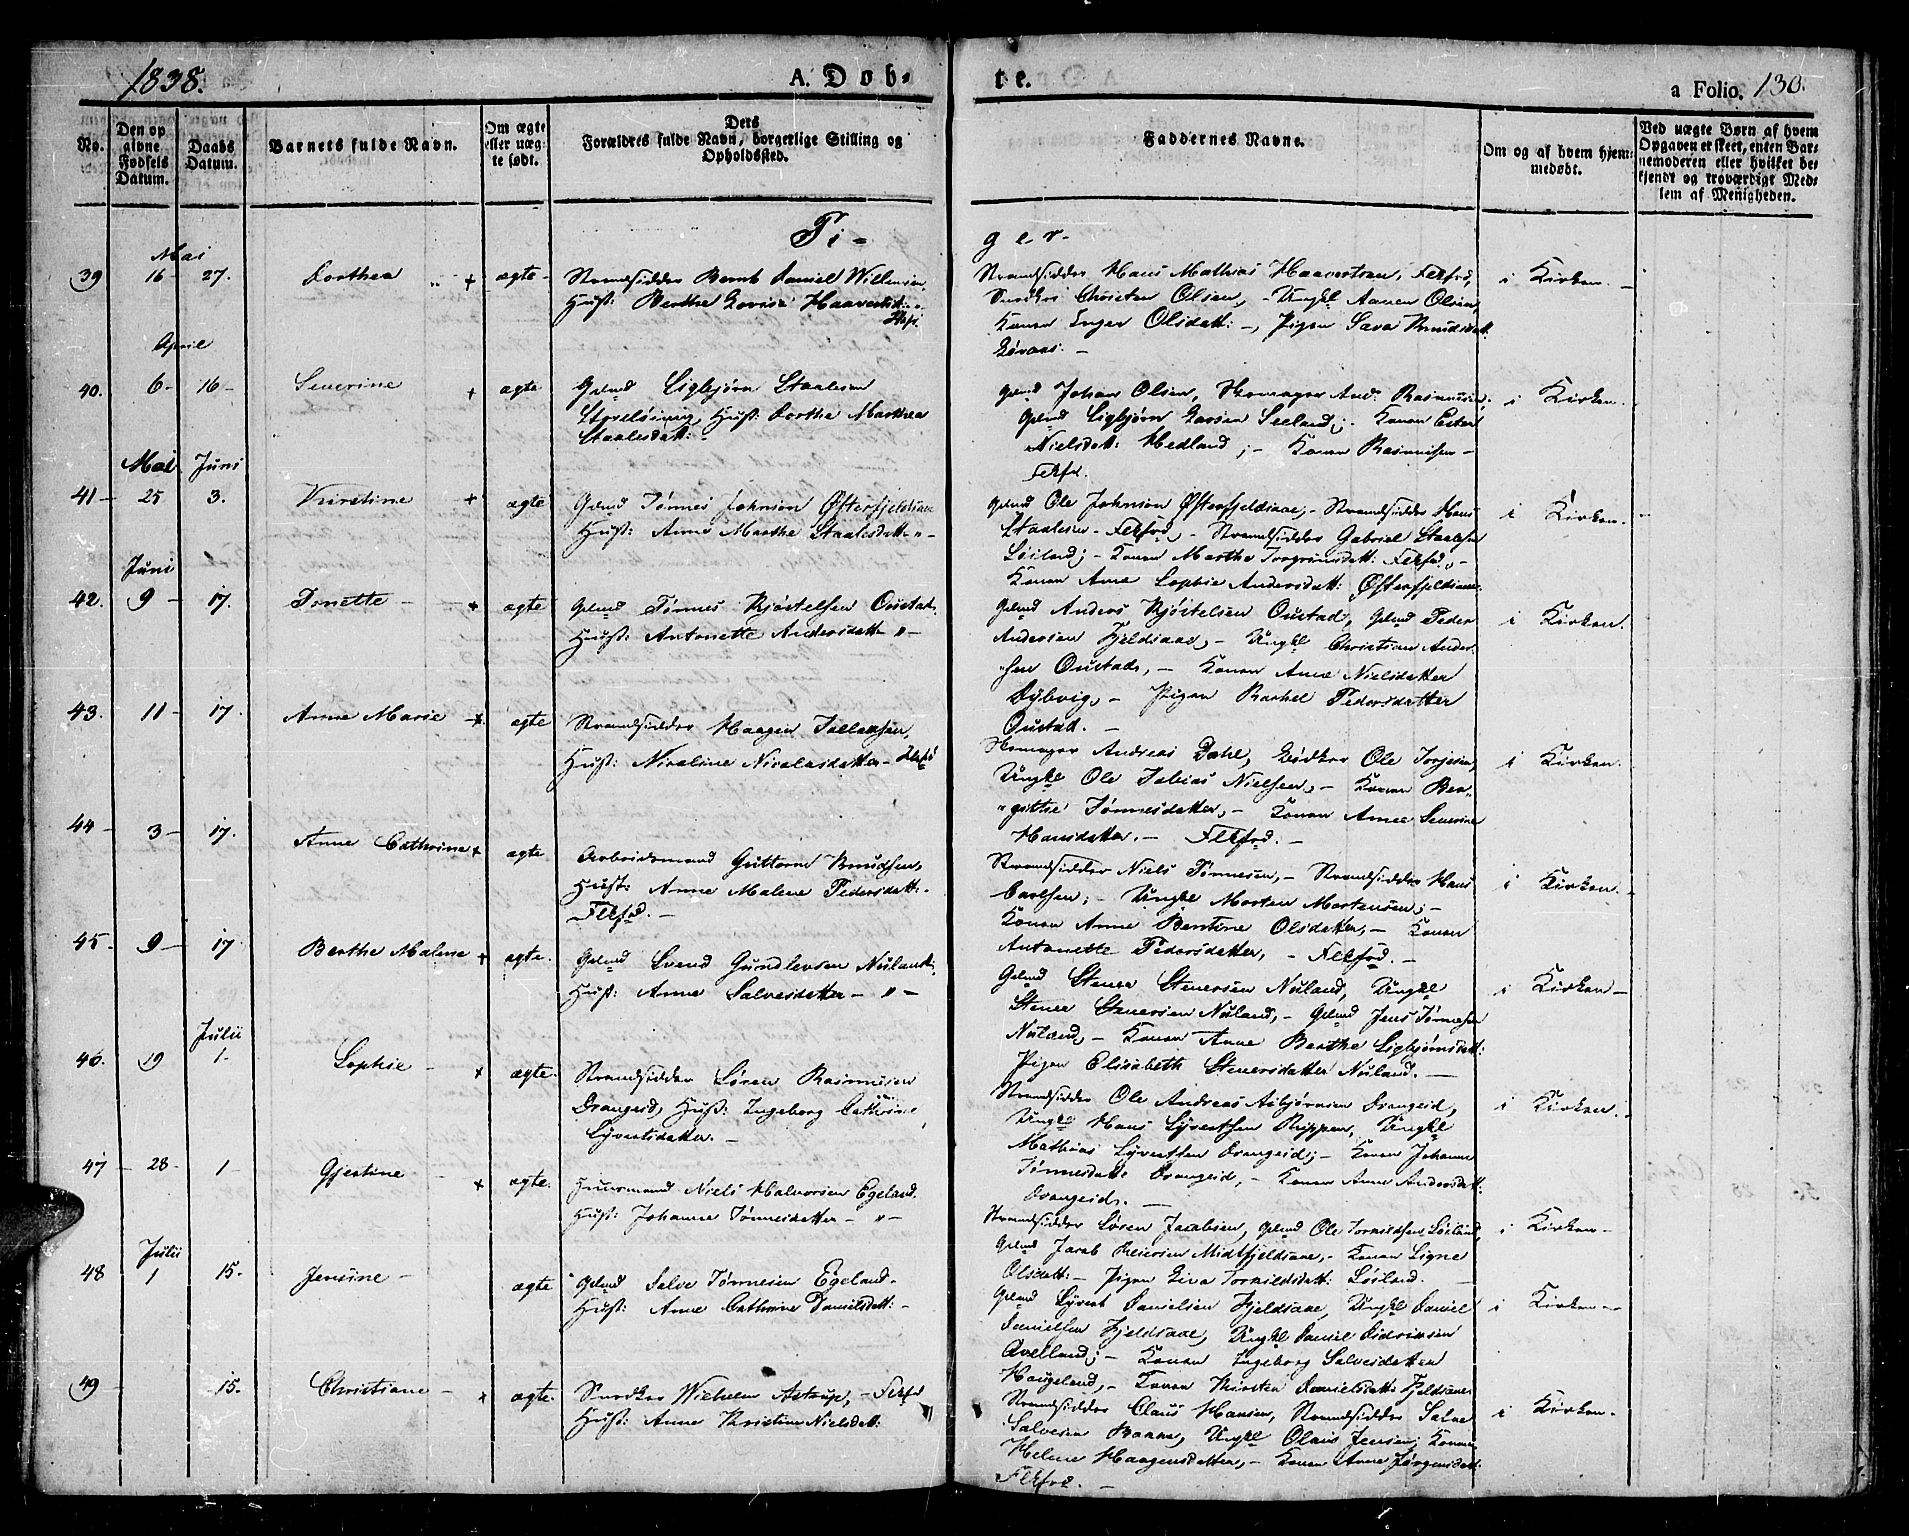 1838.
A. Døb-
te.
a Folio. 130.
No.
Den op
givne
Fødsels
Datum.
Daabs
Datum.
Barnets fulde Navn.
Om ægte
eller uæg-
te født.
Dets
Forældres fulde Navn, borgerlige Stilling og
Opholdssted.
Faddernes Navne.
Om og af hvem hjem-
medøbt.
Ved uægte Børn af hvem
Opgaven er skeet, enten Bar-
nemoderen eller hvilket be-
kjendt og troværdigt Med-
lem af Menigheden.
Pi-
ger.
Mai
39 16- 27. Dorthea + ægte- Strandsidder Bernt Daniel Willumsen
Hust: Berthe Lovise Haavertsd:
Strandsidder Hans Mathias Haavertsen, Flkfrd,
Snedker Christen Olsen, - Ungkl Aanen Olsen,
Konen Inger Olsdatt: -, Pigen Sara Knudsdatt:
i Kirken. -
April
40. 6- 16- Severine + ægte Gdmd Sigbjørn Staalesen
Hust: Dorthe Marthea
Staalesdatt:
Gdmd Johan Olsen, Skomager And. Rasmusen,
Gdmd Sigbjørn Larsen Seeland; Konen Ester
Nielsdatt: Hedland; - Konen Rasmusen -
Flkfd.
i Kirken.
Mai Juni
41- 25 3. Kirstine + ægte Gdmd Tønnes Johnsen Østerfjeldsaae
Hust: Anne Marthe Staalesdatt - " -
Gdmd Ole Johnsen Østerfjeldsaae, - Strandsidder Hans
Staalesen - Flkfrd, - Strandsidder Gabriel Staalesen
Løiland; - Konen Marthe Torgrimsdatt: Flkfd, -
Konen Ane Sophie Andersdatt: Østerfjeldsaae.
i Kirken.
Juni
42. 9- 17. Tonette - + ægte Gdmd Tønnes Kjøstelsen Oustad.
Hust: Antonette Andersdatt - " -
Gdmd Anders Kjøstelsen Oustad, Gdmd Peder
Andersen Fjeldsaae, - Ungkl Christian Ander-
sen Oustad, - Konen Anne Nielsdatter
Dybvig, - Pigen Rachel Pedersdatter
Oustad. -
i Kirken.
43. 11- 17. Anne Marie + ægte Strandsidder Haagen Tallaksen,
Hust: Nicoline Nicolaisdatter - Flkfd
Skomager Andreas Dahl, Bødker Ole Torjesen,
Ungkl Ole Tobias Nielsen, - Konen Ber-
githe Tønnesdatter, - Konen Anne Severine
Hansdatter. - Flkfrd. -
i Kirken.
44- 3- 17. Anne Cathrine + ægte. Arbeidsmand Guttorm Knudsen,
Hust: Anne Malene Pedersdatt: -
Flkfrd. -
Strandsidder Niels Tønnesen, - Strandsidder Hans
Carlsen; - Ungkl Morten Mortensen; -
Konen Anne Bentine Olsdatter, - Konen
Antonette Pedersdatter, - Flkfrd. -
i Kirken. -
45. 9- 17. Berthe Malene + ægte. Gdmd Svend Gundlevsen Nuland.
Hust: Anne Salvesdatter - " -
Gdmd Stener Stenersen Nuland, Ungkl
Stener Stenersen Nuland, - Gdmd Jens Tønnesen
Nuland, - Konen Anne Berthe Sigbjørnsdatt:
Pigen Elisabeth Stenersdatter Nuland. -
i Kirken -
Julii
46. 19 1- Sophie - + ægte. Strandsidder Søren Rasmusen
Drangeid, Hust: Ingeborg Cathrine
Syvertsdatter. -
Strandsidder Ole Andreas Asbjørnsen Drangeid,
Ungkl Hans Syvertsen Rippen, Ungkl
Mathias Syvertsen Drangeid; - Konen Johanne
Tønnesdatt: Drangeid, - Konen Anne Andersdatt:
Drangeid. -
i Kirken.
47 - 28- 1- Gjertine - + ægte. Huusmand Niels Halvorsen Egeland.
Hust: Johanne Tønnesdatter - " -
Strandsidder Søren Jacobsen, Gdmd Ole Torkildsen Løiland,
Gdmd Jacob Reiersen Midtfjeldsaae, - Konen Signe
Olsdatt: - Pigen Siva Torkildsdatt: Løiland. -
i Kirken -
Julii
48 1 15. Jensine - ægte Gdmd Salve Tønnesen Egeland.
Hust: Anne Cathrine Danielsdatt: -
Gdmd Syvert Danielsen Fjeldsaae, Ungkl Daniel
Danielsen Fjeldsaae, Ungkl Daniel Didriksen
Avelland; - Konen Ingeborg Salvesdatter
Haugeland, - Konen Kirsten Danielsdatt: Fjeldsaae
i Kirken -
49 15. Christiane - + ægte. Snedker Wilhelm Astrup, - Flkfd
Hust: Anne Kristine Nielsdatt:
Strandsidder Claus Hansen, Strandsidder Salve
Salvesen Ungkl Olaus Jensen, Konen
Helene Haagensdatter, - Konen Anne Jørgensdatt:
Flkfrd. -
i Kirken.